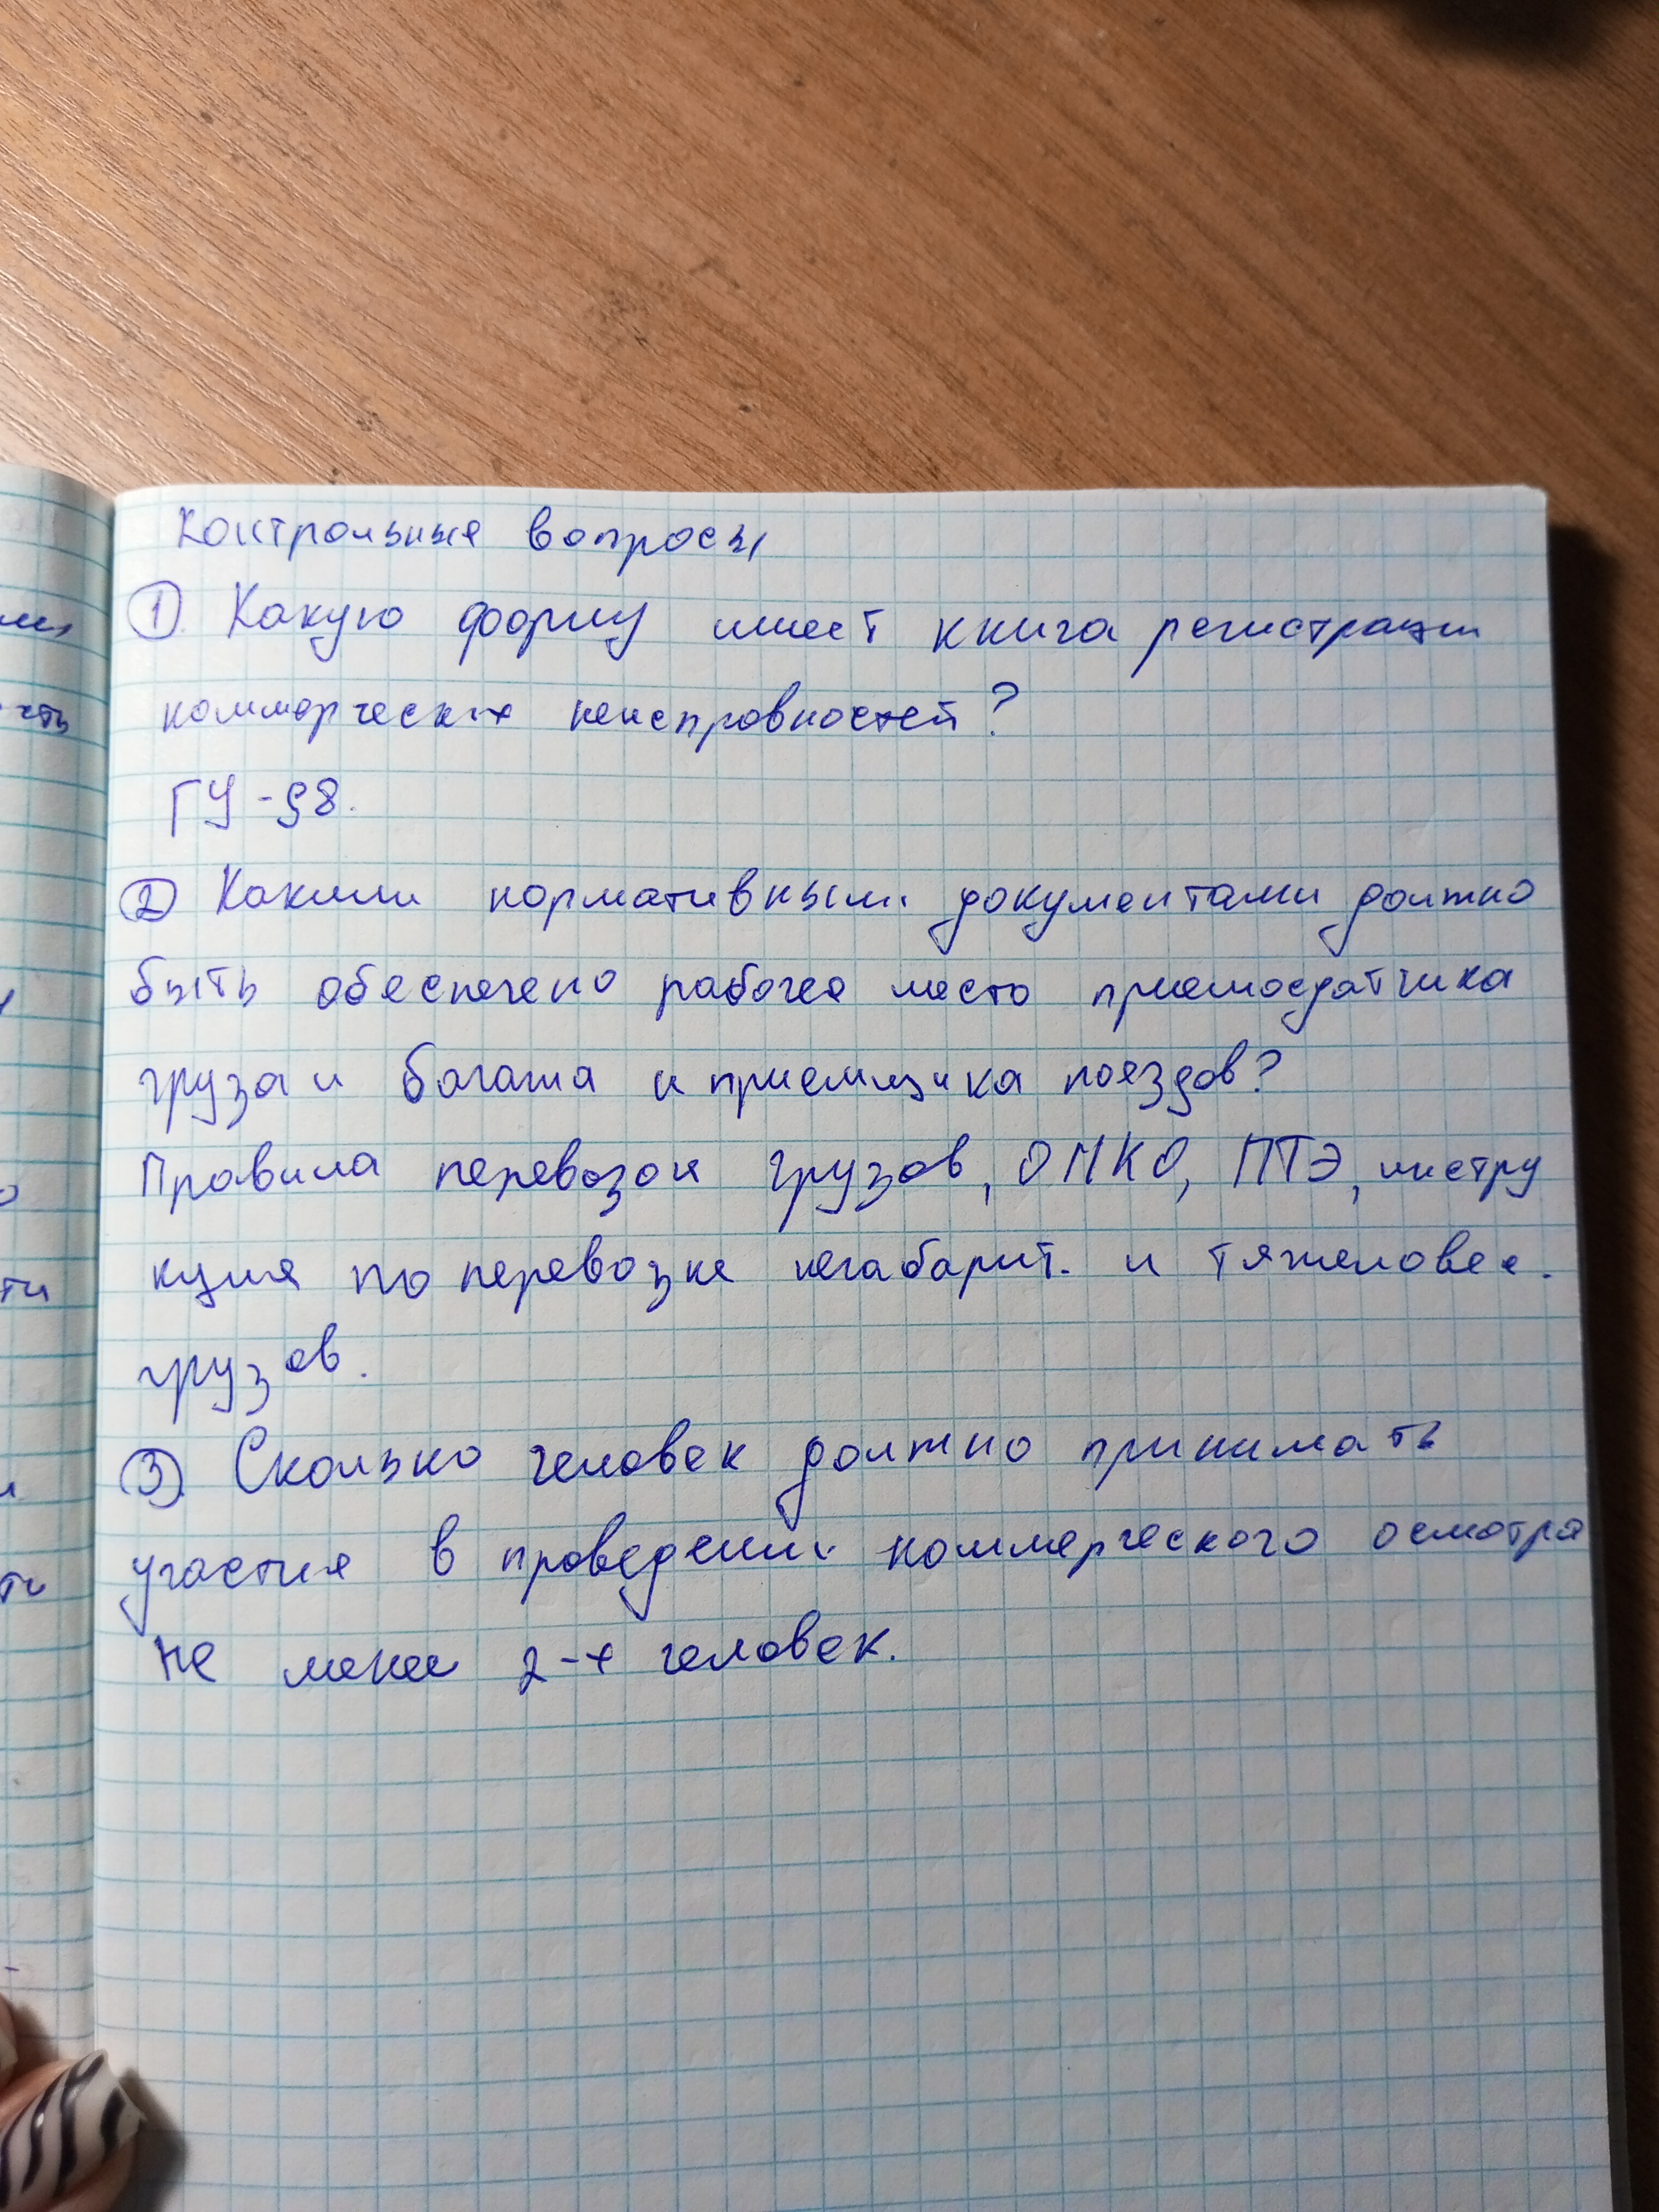 Контрольные вопросы
① Какую форму имеет книга регистрации
коммерческих неисправностей?
ГУ-98.
② Какими нормативными документами должно
быть обеспечено рабочее место приемосдатчика
груза и багажа и приемщика поездов?
Правила перевозок грузов, ОМКО, ПТЭ, инстру
кция по перевозке негабарит. и тяжеловес.
грузов.
③ Сколько человек должно принимать
участие в проведении коммерческого осмотра
не менее 2-х человек.